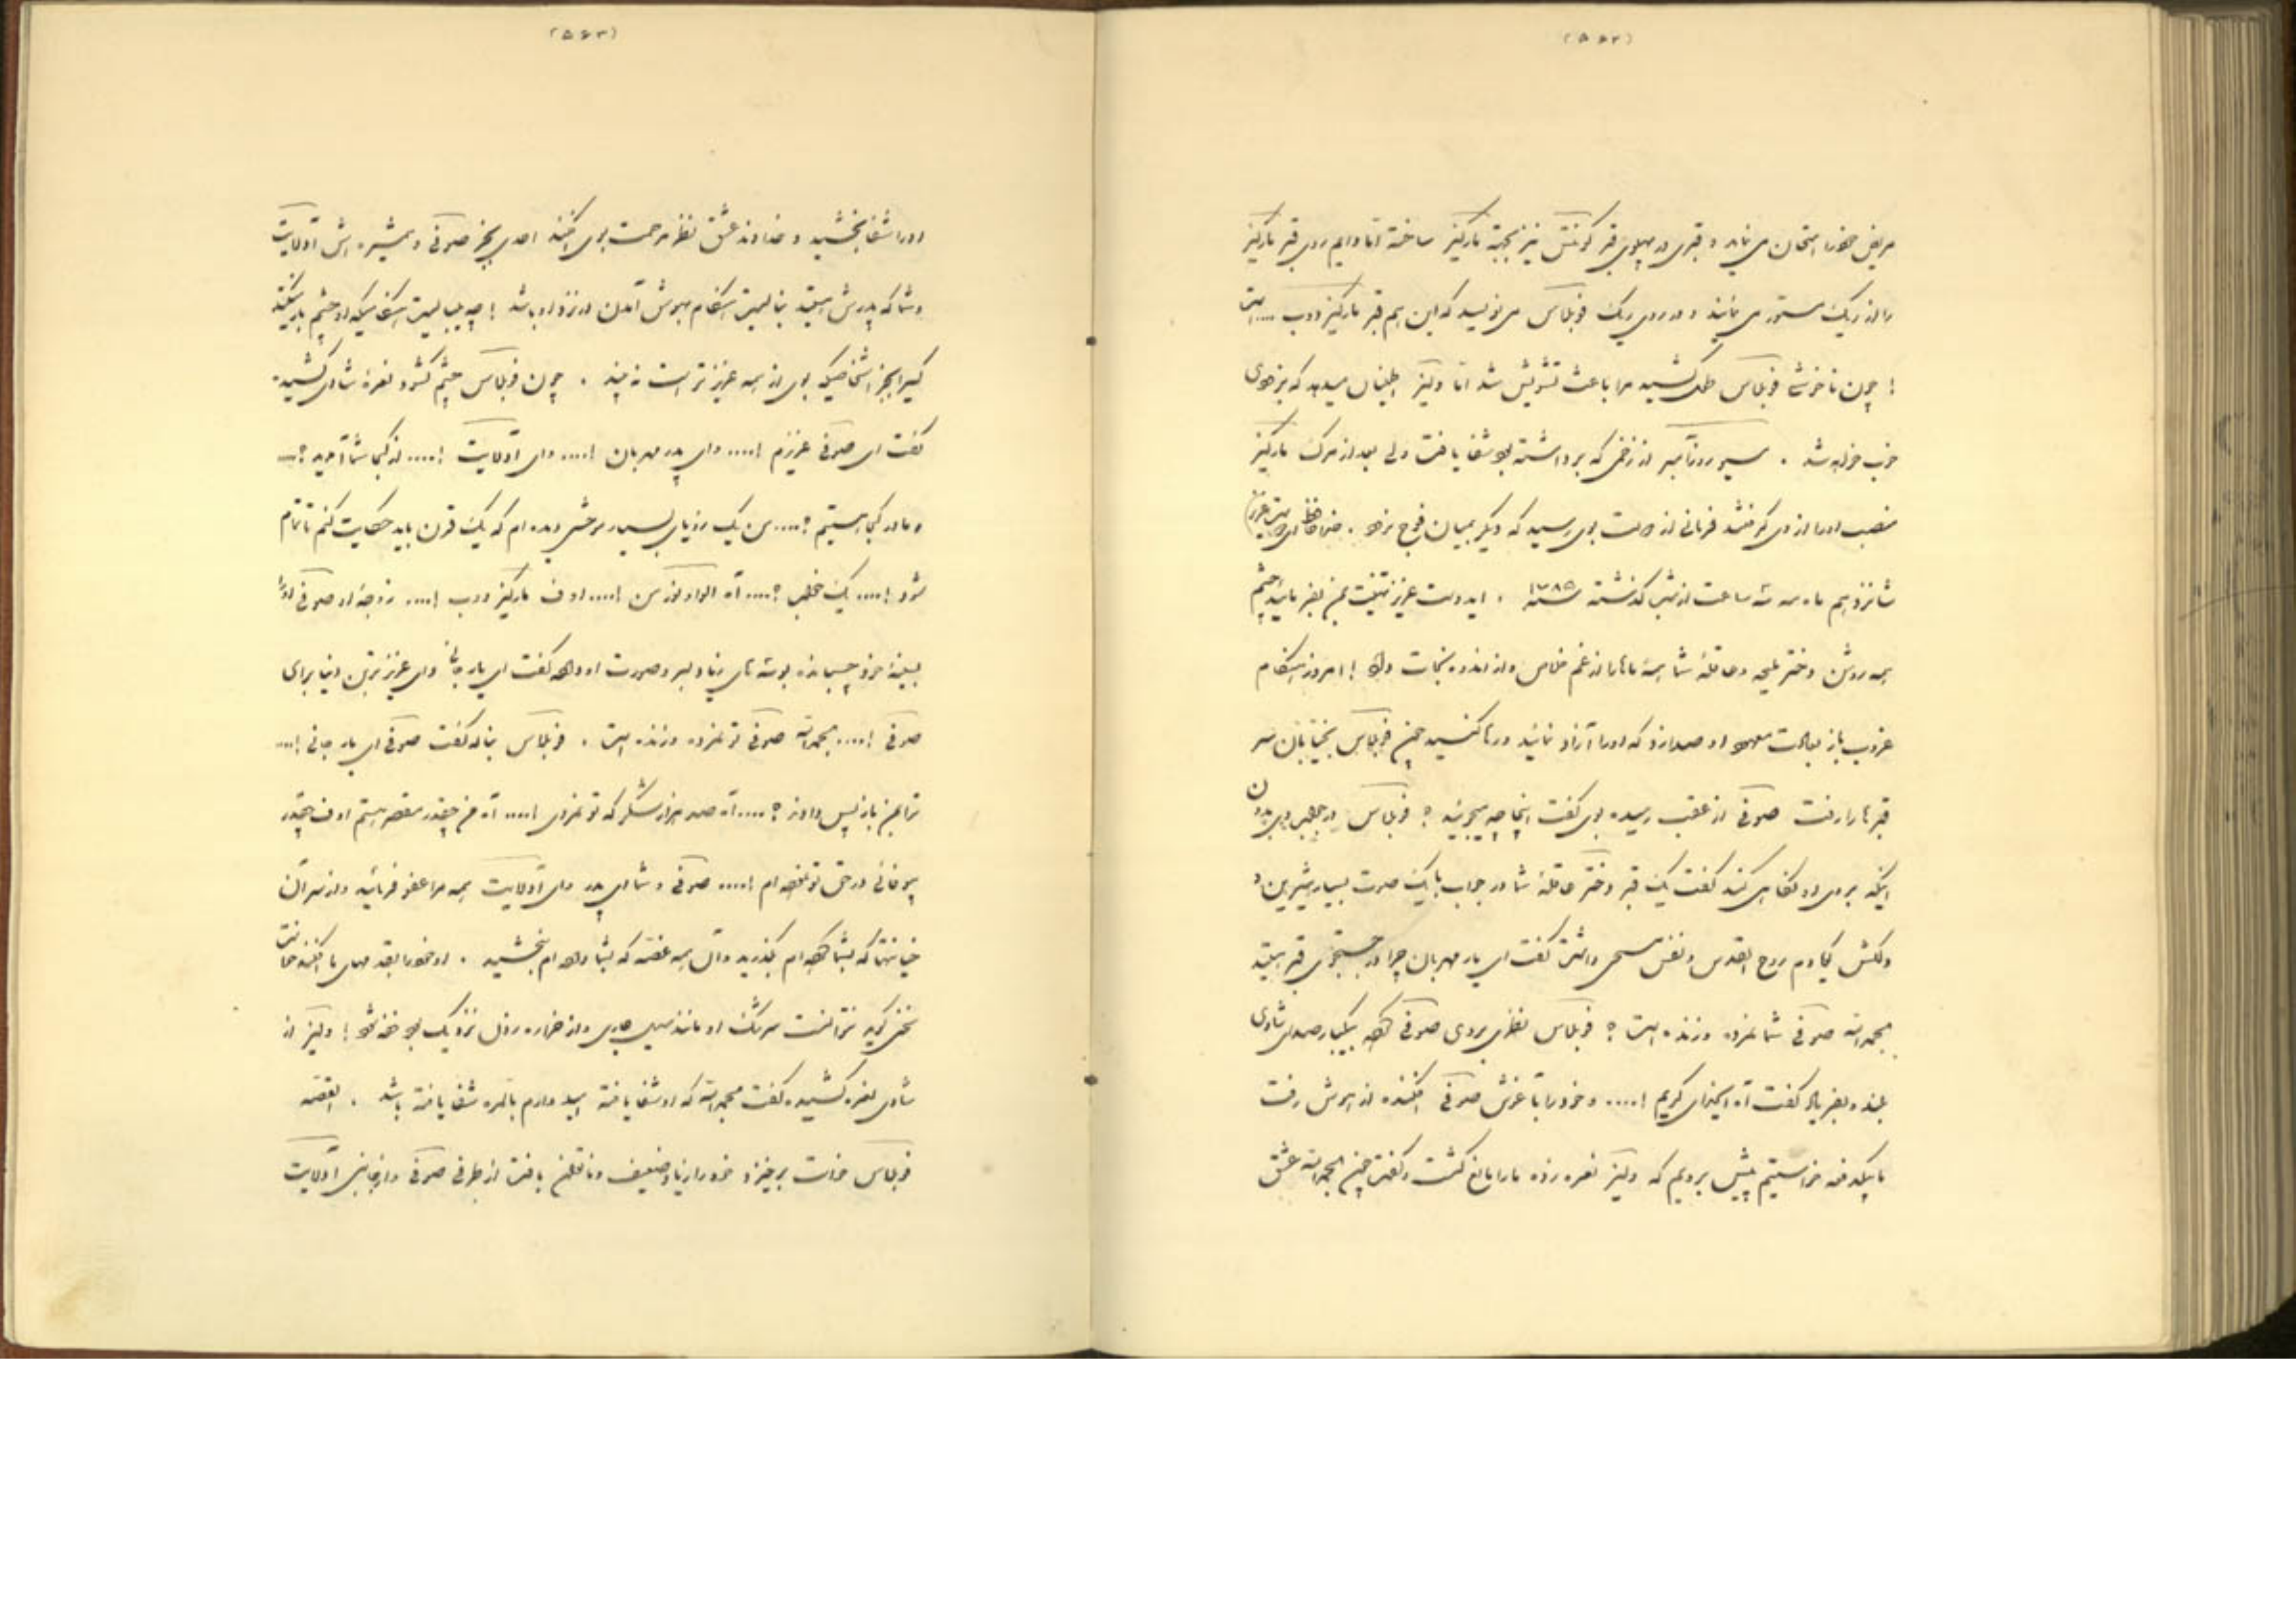 (۵۶۲)
مریض خود را امتحان می نماید و قبری در پهلوی قبر کونتس نیز بجهة مارکیز ساخته اما دایم روی قبر مارکیز
را از ریک مستور می نماید و در روی ریک فوبلاس می نویسد که این هم قبر مارکیز دوب .... است
! چون ناخوشی فوبلاس طول کشید مرا باعث تشویش شد اما ولیز اطمینان میدهد که بزودی
خوب خواهد شد . مسیو روزآمبر از زخمی که برداشته بود شفا یافت ولی بعد از مرگ مارکیز
منصب او را از وی گرفتند فرمانی از دولت بوی رسید که دیگر بمیان فوج نرود . خداحافظ ای دوست عزیز
شانزدهم ماه مه سه ساعت از شب گذشته سنه ۱۷۸۵ . ایدوست عزیز تهنیت بمن بفرمائید چشم
همه روشن دختر ملیحه و عاقلهٔ شما همهٔ ماها را از غم خلاص و از اندوه نجات داد ! امروز هنگام
غروب باز بعادت معهود او صدا زد که او را آزاد نمایند و رها کنید چون فوبلاس بخیابان سر
قبرها را رفت صوفی از عقب رسیده بوی گفت اینجا چه میجوئید ؟ فوبلاس در جواب وی بدون
اینکه بروی او نگاهی کند گفت یک قبر دختر عاقلهٔ شما در جواب با یک صوت بسیار شیرین و
دلکش گویا دم روح القدس و نفس مسیحی داشت گفت ای یار مهربان چرا در جستجوی قبر هستید
بحمدالله صوفی شما نمرده و زنده است ؟ فوبلاس نظری بروی صوفی کرده بیکبار صدای شادی
بلند و بفریاد گفت آه ایخدای کریم !.... و خود را بآغوش صوفی افکنده از هوش رفت
ما یکدفعه خواستیم پیش برویم که ولیز نعره زده ما را مانع گشت و گفت چون بحمدالله عشق
(۵۶۳)
او را شفا بخشید و خداوند عشق نظر مرحمت بوی افکند احدی بجز صوفی و همشیره اش آدلایت
و شما که پدرش هستید نبایست هنگام بهوش آمدن در نزد او باشد ! چه میبایست هنگامیکه او چشم باز میکند
کسیرا بجز اشخاصیکه بوی از همه عزیز تر است نه بیند . چون فوبلاس چشم گشود نعره شادی کشیده
گفت ای صوفی عزیزم !.... وای پدر مهربان !.... وای آدلایت !.... از کجا شما آمدید ؟...
و ما در کجا هستیم ؟.... من یک رؤیای بسیار موحشی دیده ام که یک قرن باید حکایت کنم تا تمام
شود !.... یک خواب ؟.... آه الواونور من !.... اوف مارکیز دوب !.... زوجهٔ او صوفی او را
بسینهٔ خود چسبانده بوسه های زیاد بر سر و صورت او داده گفت ای یار جانی وای عزیزترین دنیا برای
صوفی !.... بحمدالله صوفی تو نمرده و زنده است . فوبلاس بناله گفت صوفی ای یار جانی !....
ترا بمن باز پس دادند ؟.... آه صد هزار شکر که تو نمردی !.... آه من چقدر مقصر هستم اوف چقدر
بیوفائی در حق تو نموده ام !.... صوفی و شما ای پدر وای آدلایت همه مرا عفو فرمائید و از سر آن
خیانتها که بشما کرده ام بگذرید و آن همه غصه که بشما داده ام ببخشید . او خود را بقدمهای ما افکنده
سخن گوید نتوانست سرشک او مانند سیل جاری و از هزاره روان نزدیک بود خفه شود ! ولیز از
شادی نعره کشیده گفت بحمدالله که او شفا یافته امید دارم بالمره شفا یافته باشد . القصه
فوبلاس خواست برخیزد خود را زیاد ضعیف و ناتوان یافت از طرفی صوفی و از جانبی آدلایت